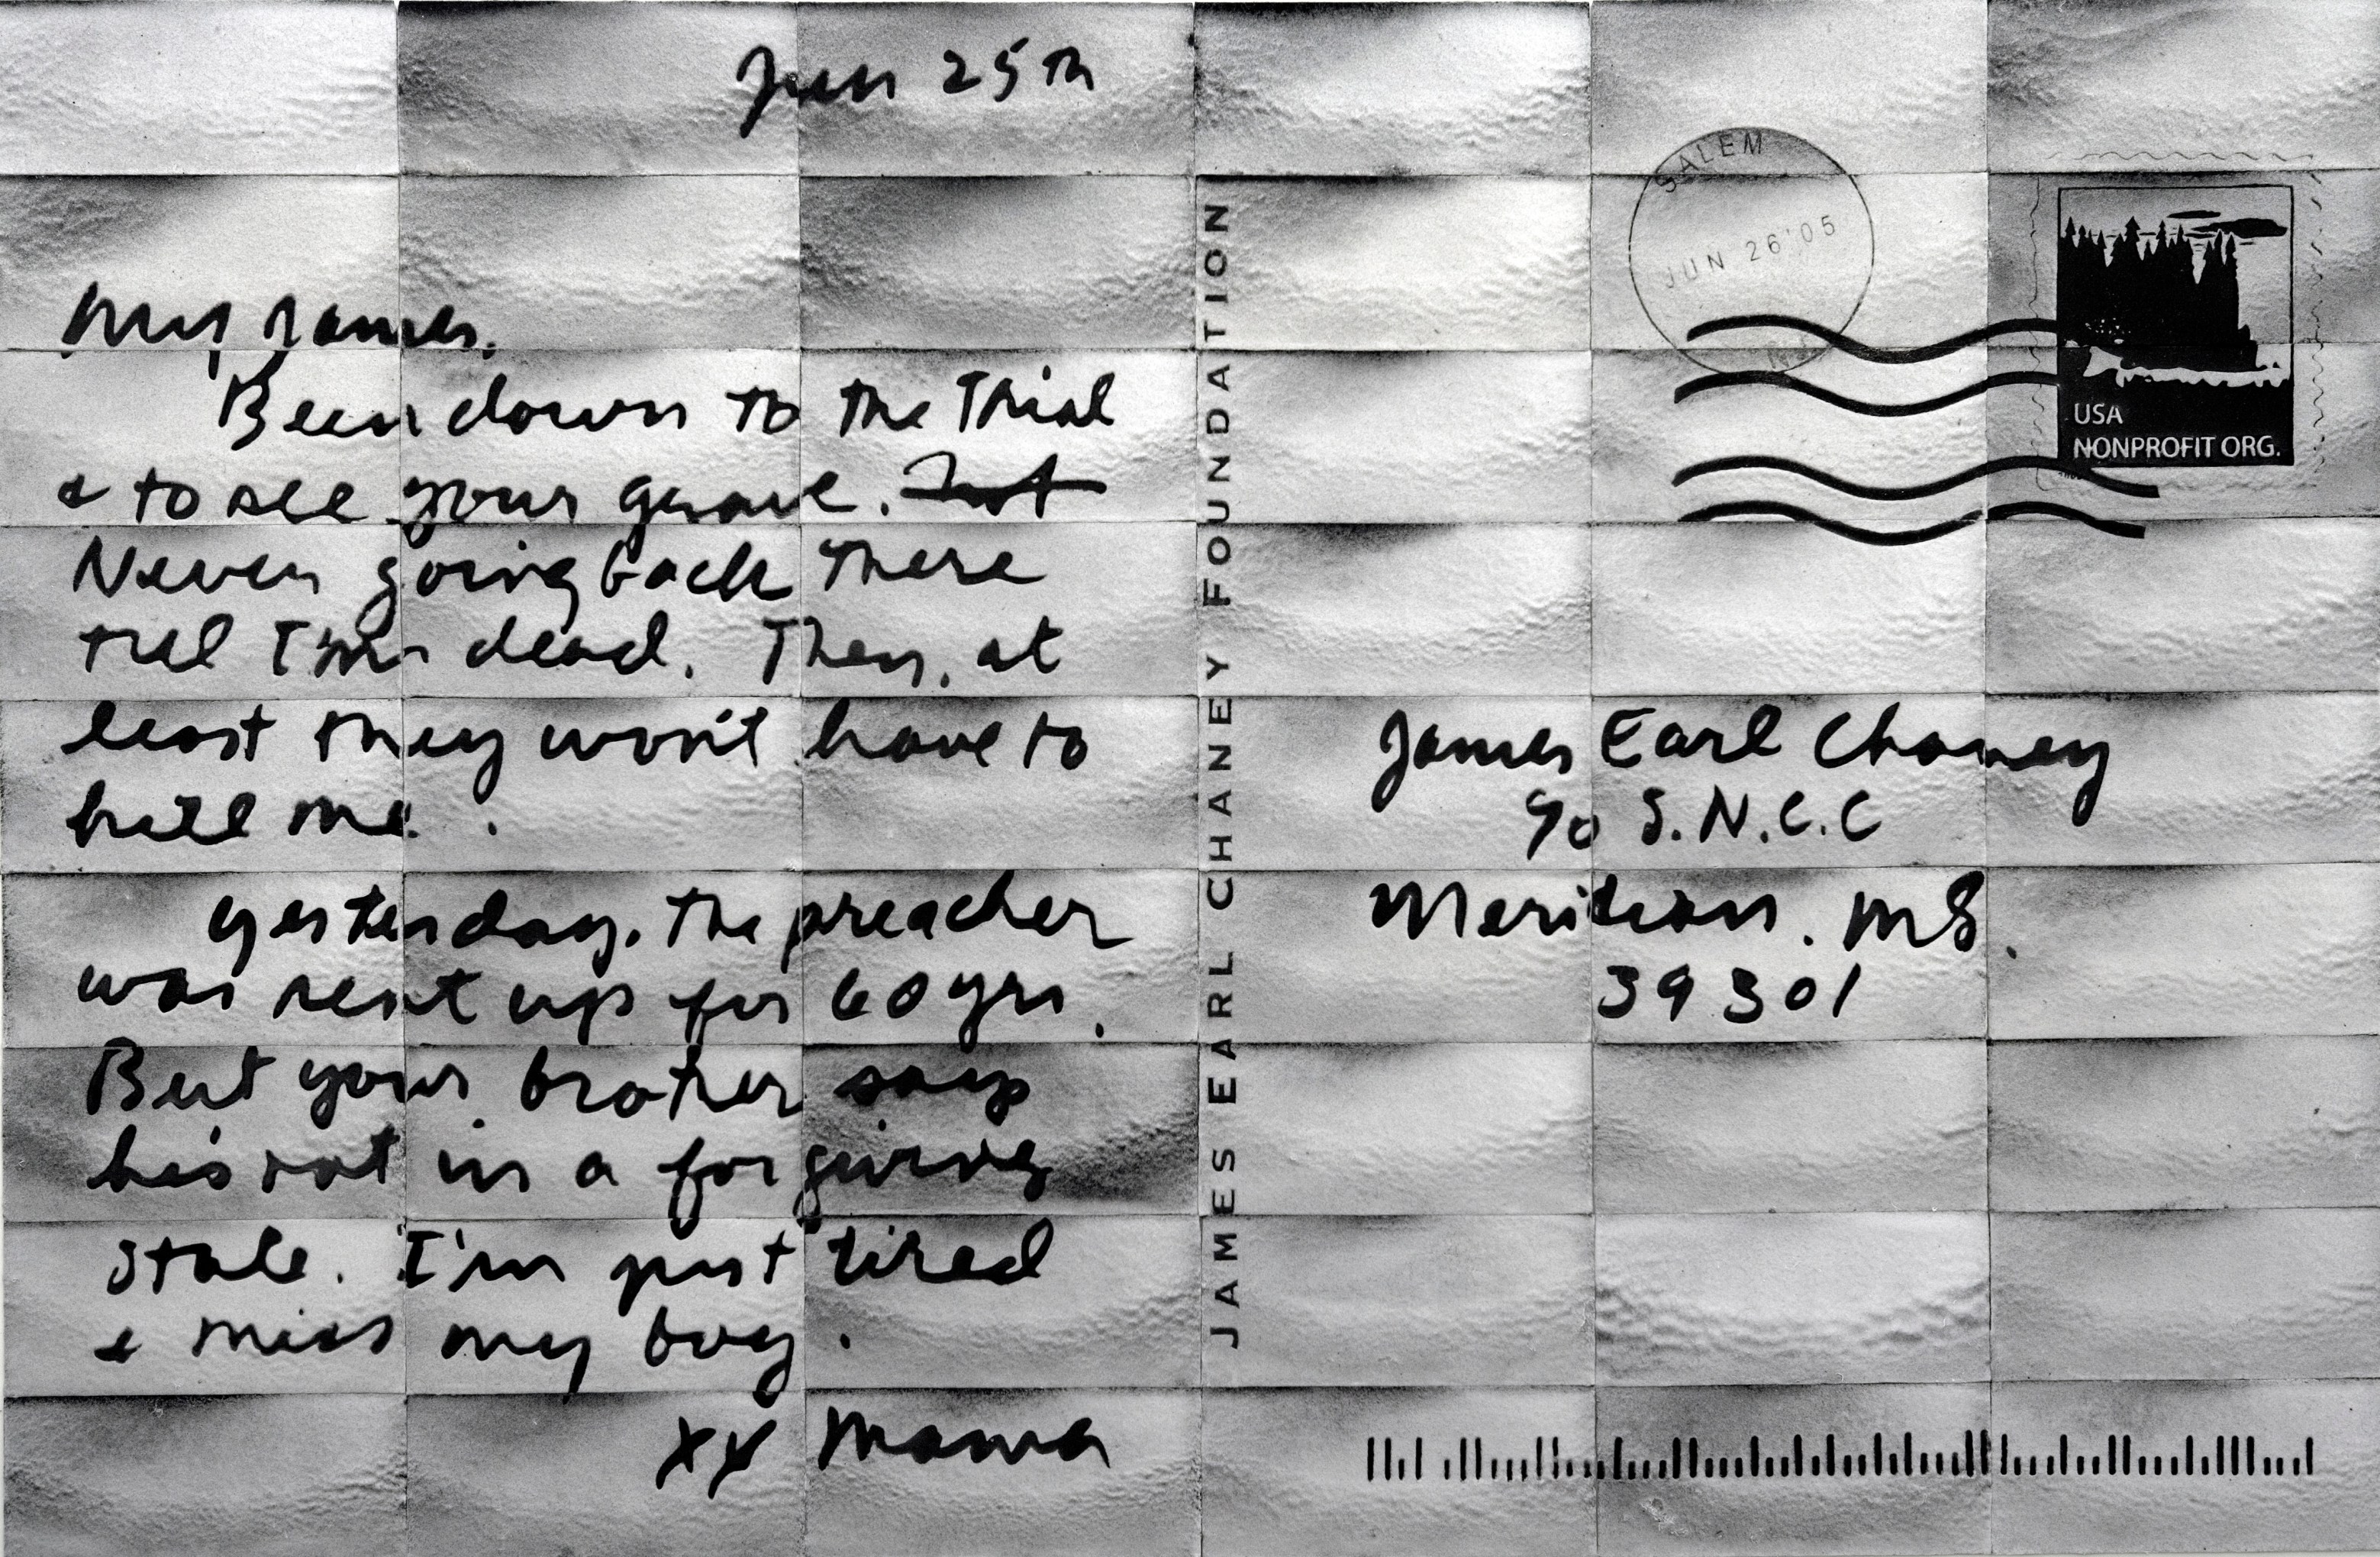 Jun 25th
My James,
Been down to the Trial
& to see your grave. Just
Never going back there
till I'm dead. Then, at
least they won't have to
kill me.
Yesterday, the preacher
was sent up for 60 yrs.
But your brother says
he's not in a forgiving
state. I'm just tired
& miss my boy.
XX Mama
JAMES EARL CHANEY FOUNDATION
SALEM
JUN 26'05
NJ
USA
NONPROFIT ORG.
James Earl Chaney
c/o S.N.C.C
Meridian, MS.
39301